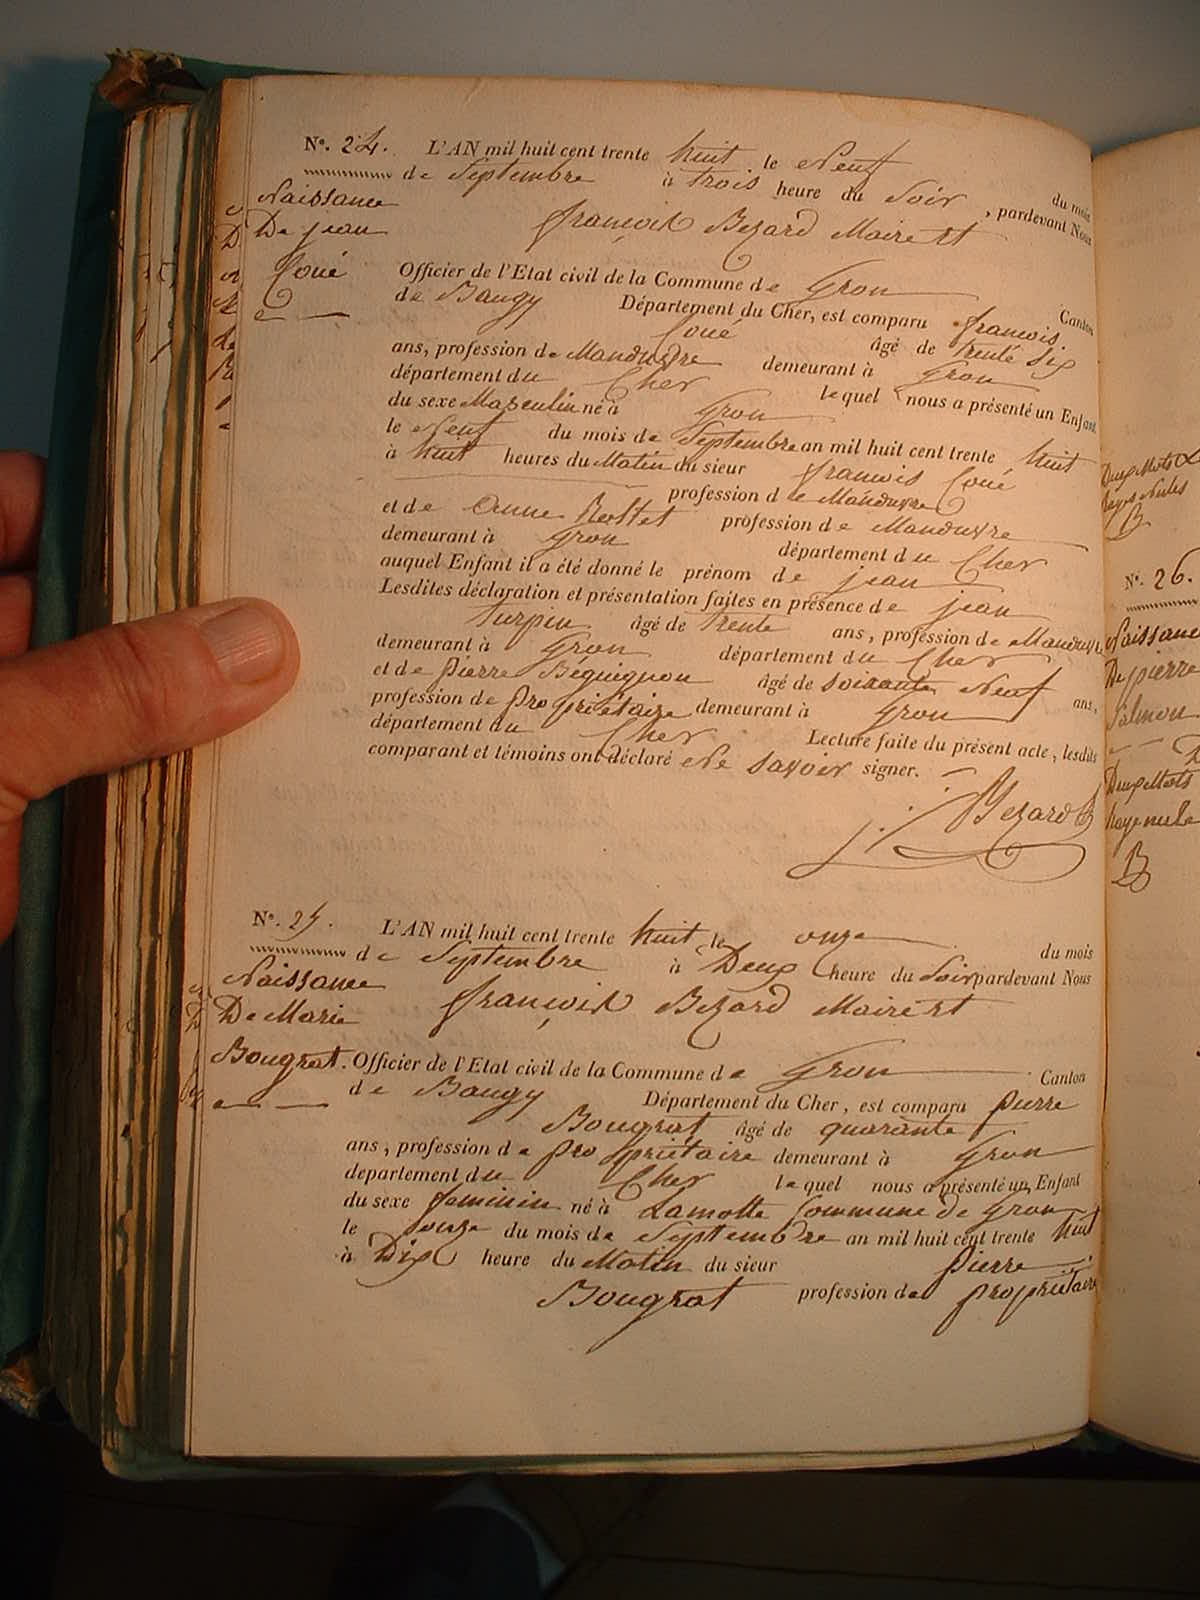 N°. 24. L'AN mil huit cent trente huit le Neuf du mois
de Septembre à trois heure du Soir, pardevant Nous
Naissance
De jean
Coué
françois Bezard Maire et
Officier de l'Etat civil de la Commune de Gron Canton
de Baugy Département du Cher, est comparu francois
Coué âgé de trente six
ans, profession de Manœuvre demeurant à Gron
département du Cher lequel nous a présenté un Enfant
du sexe Masculin né à Gron
le Neuf du mois de Septembre an mil huit cent trente huit
à huit heures du Matin du sieur francois Coué
profession de Manœuvre
et de Anne profession de Manœuvre
demeurant à Gron département du Cher
auquel Enfant il a été donné le prénom de jean
Lesdites déclaration et présentation faites en présence de jean
turpin âgé de trente ans, profession de Manœuvre
demeurant à Gron département du Cher
et de Pierre Béguignon âgé de soixante Neuf ans,
profession de Propriétaire demeurant à Gron
département du Cher Lecture faite du présent acte, lesdits
comparant et témoins ont déclaré Ne savoir signer.
Bezard
N°. 25. L'AN mil huit cent trente huit le onze du mois
de Septembre à Deux heure du Soir pardevant Nous
Naissance
De Marie
Bougrat.
françois Bezard Maire et
Officier de l'Etat civil de la Commune de Gron Canton
de Baugy Département du Cher, est comparu pierre
Bougrat âgé de quarante
ans, profession de propriétaire demeurant à Gron
département du Cher lequel nous a présenté un Enfant
du sexe feminin né à Lamotte Commune de Gron
le onze du mois de Septembre an mil huit cent trente huit
à Dix heure du Matin du sieur pierre
Bougrat profession de propriétaire
Deux Mots
rayés Nuls
B
N°. 26.
Naissance
De pierre
Salmon
Deux Mots
B